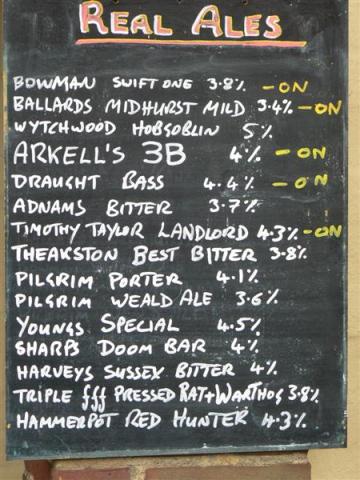 REAL ALES
BOWMAN SWIFT ONE 3.8% - ON
BALLARDS MIDHURST MILD 3.4% - ON
WYTCHWOOD HOBGOBLIN 5%
ARKELL'S 3B 4% - ON
DRAUGHT BASS 4.4% - ON
ADNAMS BITTER 3.7%
TIMOTHY TAYLOR LANDLORD 4.3% - ON
THEAKSTON BEST BITTER 3.8%
PILGRIM PORTER 4.1%
PILGRIM WEALD ALE 3.6%
YOUNGS SPECIAL 4.5%
SHARPS DOOM BAR 4%
HARVEYS SUSSEX BITTER 4%
TRIPLE fff PRESSED RAT+WARTHOG 3.8%
HAMMERPOT RED HUNTER 4.3%